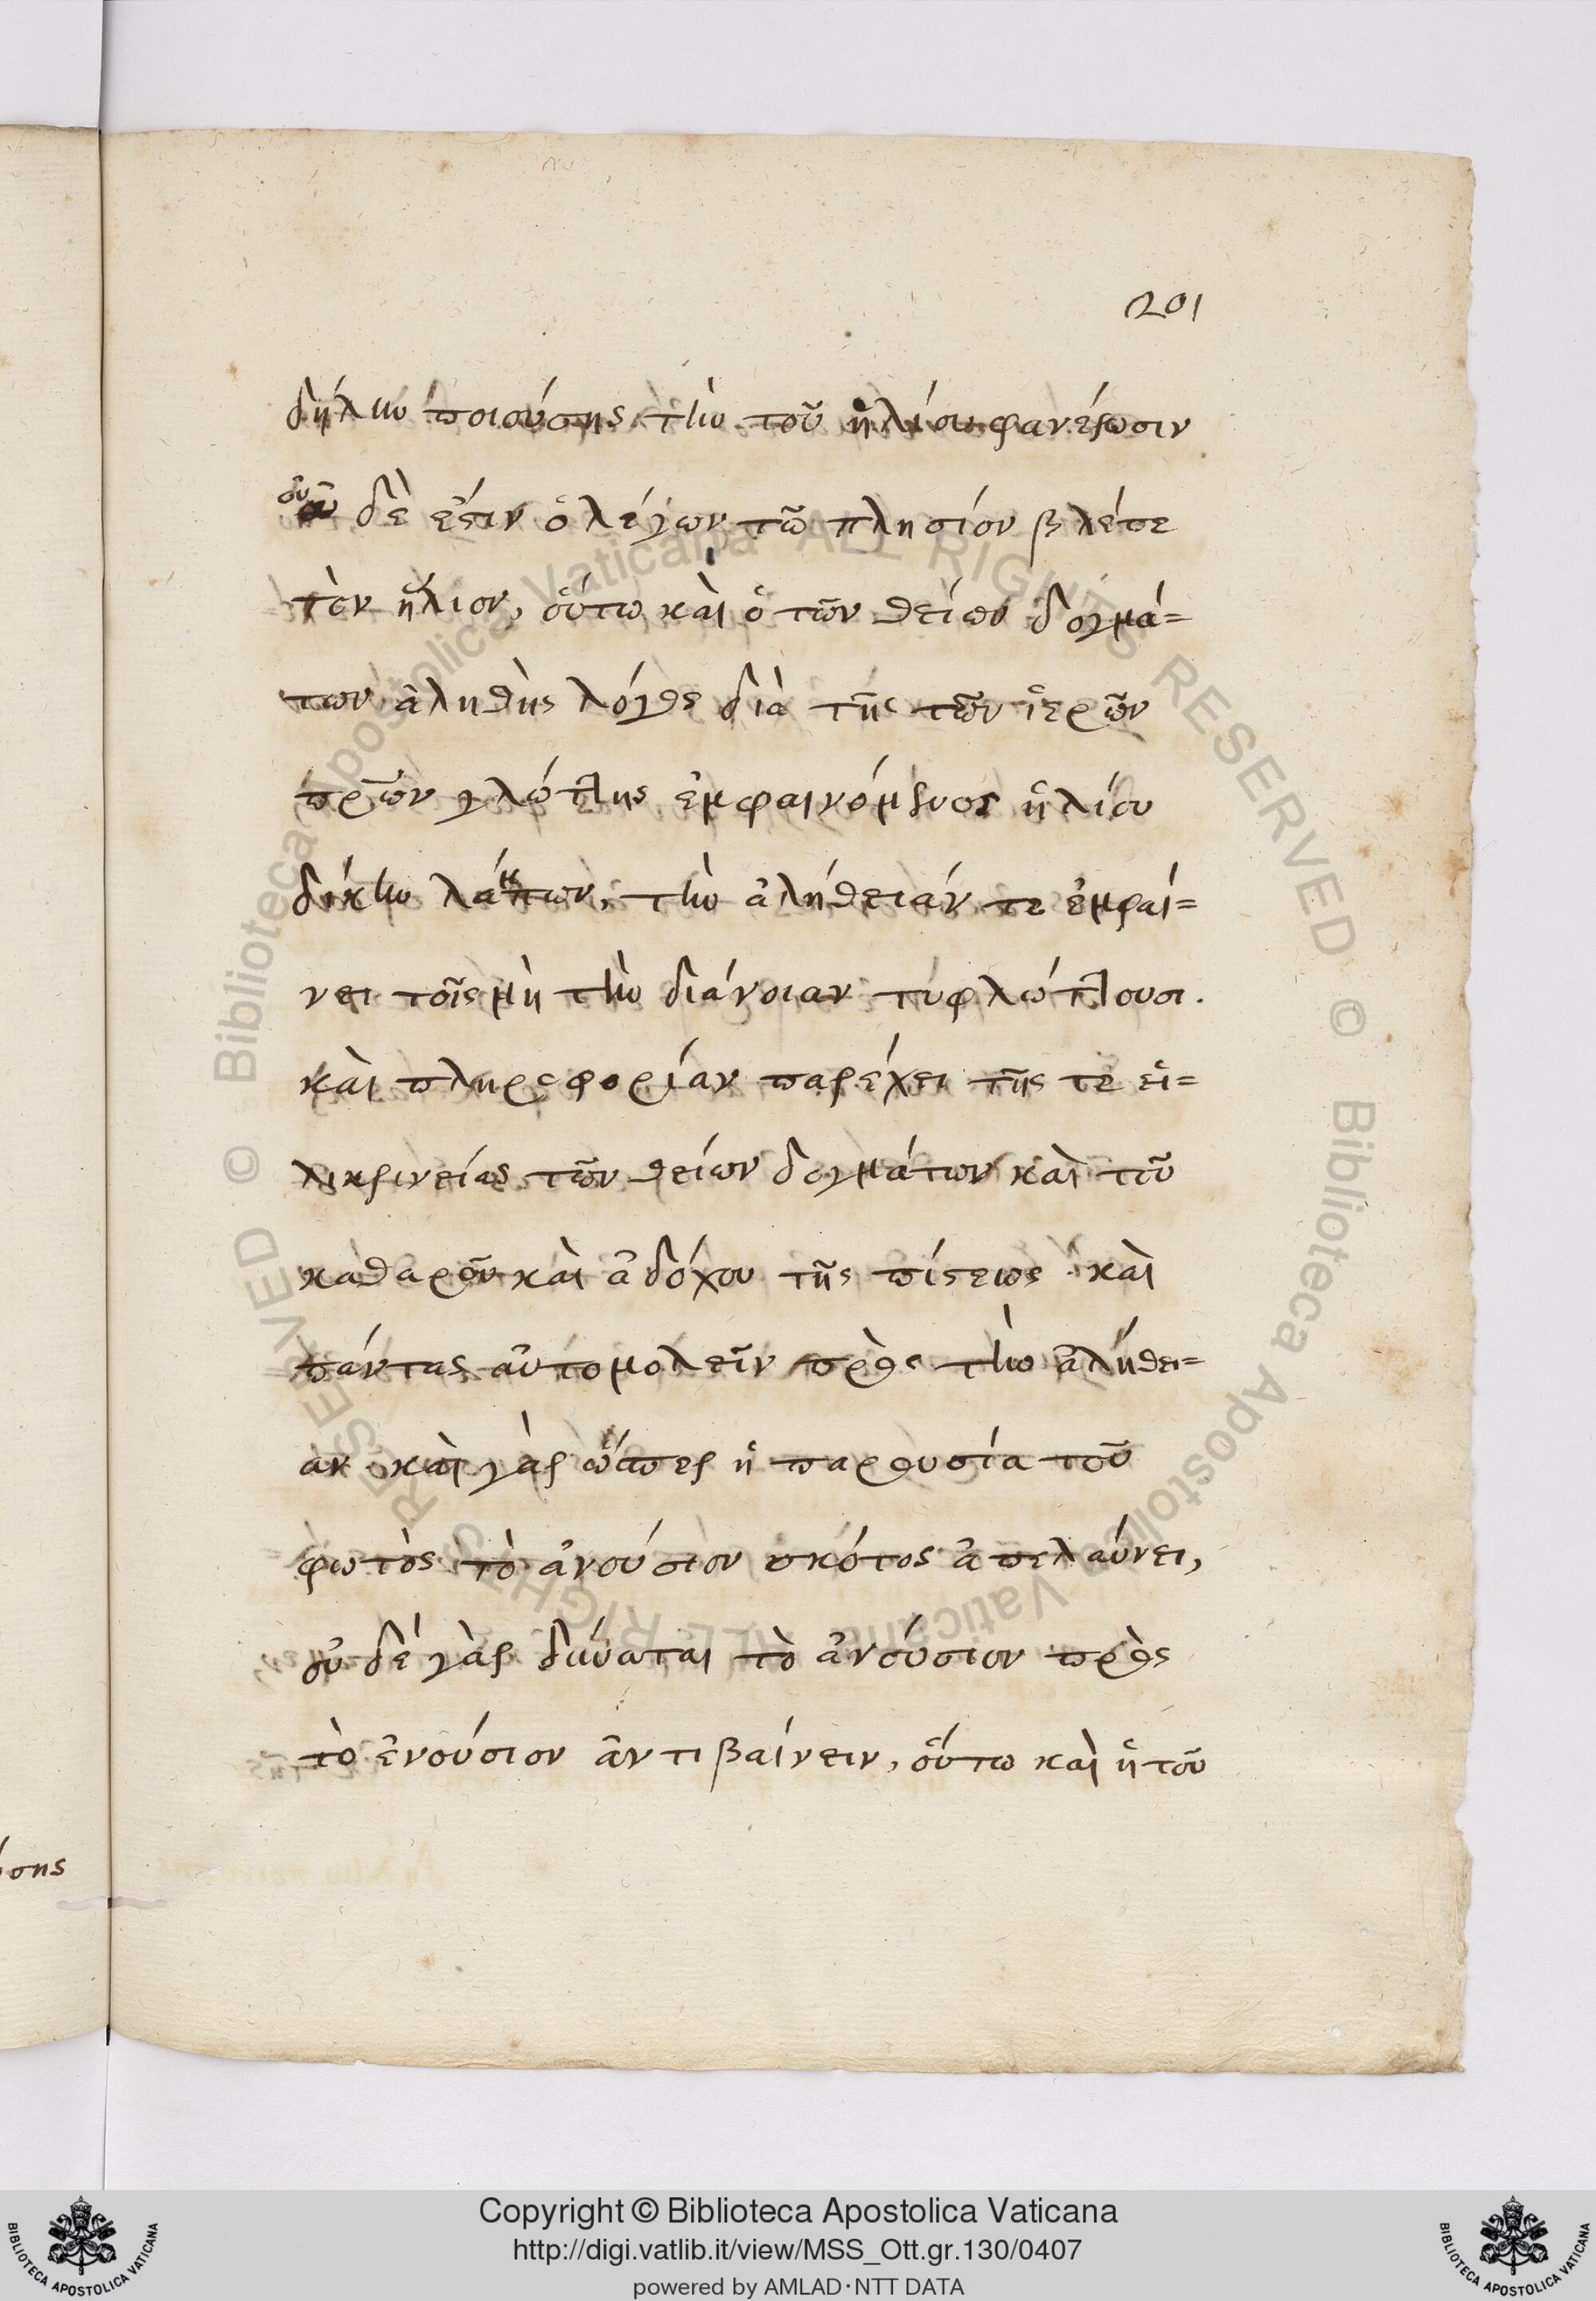 201
δήλην ποιούσης τὴν τοῦ ἡλίου φανέρωσιν
οὐ δέ ἐστιν ὁ λέγων τῶ πλησίον βλέπε
τὸν ἥλιον, οὕτω καὶ ὁ τῶν θείων δογμά=
των ἀληθὴς λόγος διὰ τῆς τῶν ἱερῶν
πρων γλώττης ἐμφαινόμενος ἡλίου
δίκην λάμπων, τὴν ἀλήθειάν τε ἐμφαί=
νει τοῖς μὴ τὴν διάνοιαν τυφλώττουσι.
καὶ πληροφορίαν παρέχει τῆς τε εἱ=
λικρινείας τῶν θείων δογμάτων καὶ τοῦ
καθαροῦ καὶ ἀδόχου τῆς πίστεως καὶ
πάντας αὐτομολεῖν πρὸς τὴν ἀλήθει=
αν. καὶ γὰρ ὥσπερ ἡ παρουσία τοῦ
φωτὸς τὸ ἀνούσιον σκότος ἀπελαύνει,
οὐ δὲ γὰρ δύναται τὸ ἀνούσιον πρὸς
τὸ ἐνούσιον ἀντιβαίνειν, οὕτω καὶ ἡ τοῦ
σης
Copyright © Biblioteca Apostolica Vaticana
http://digi.vatlib.it/view/MSS_Ott.gr.130/0407
powered by AMLAD·NTT DATA